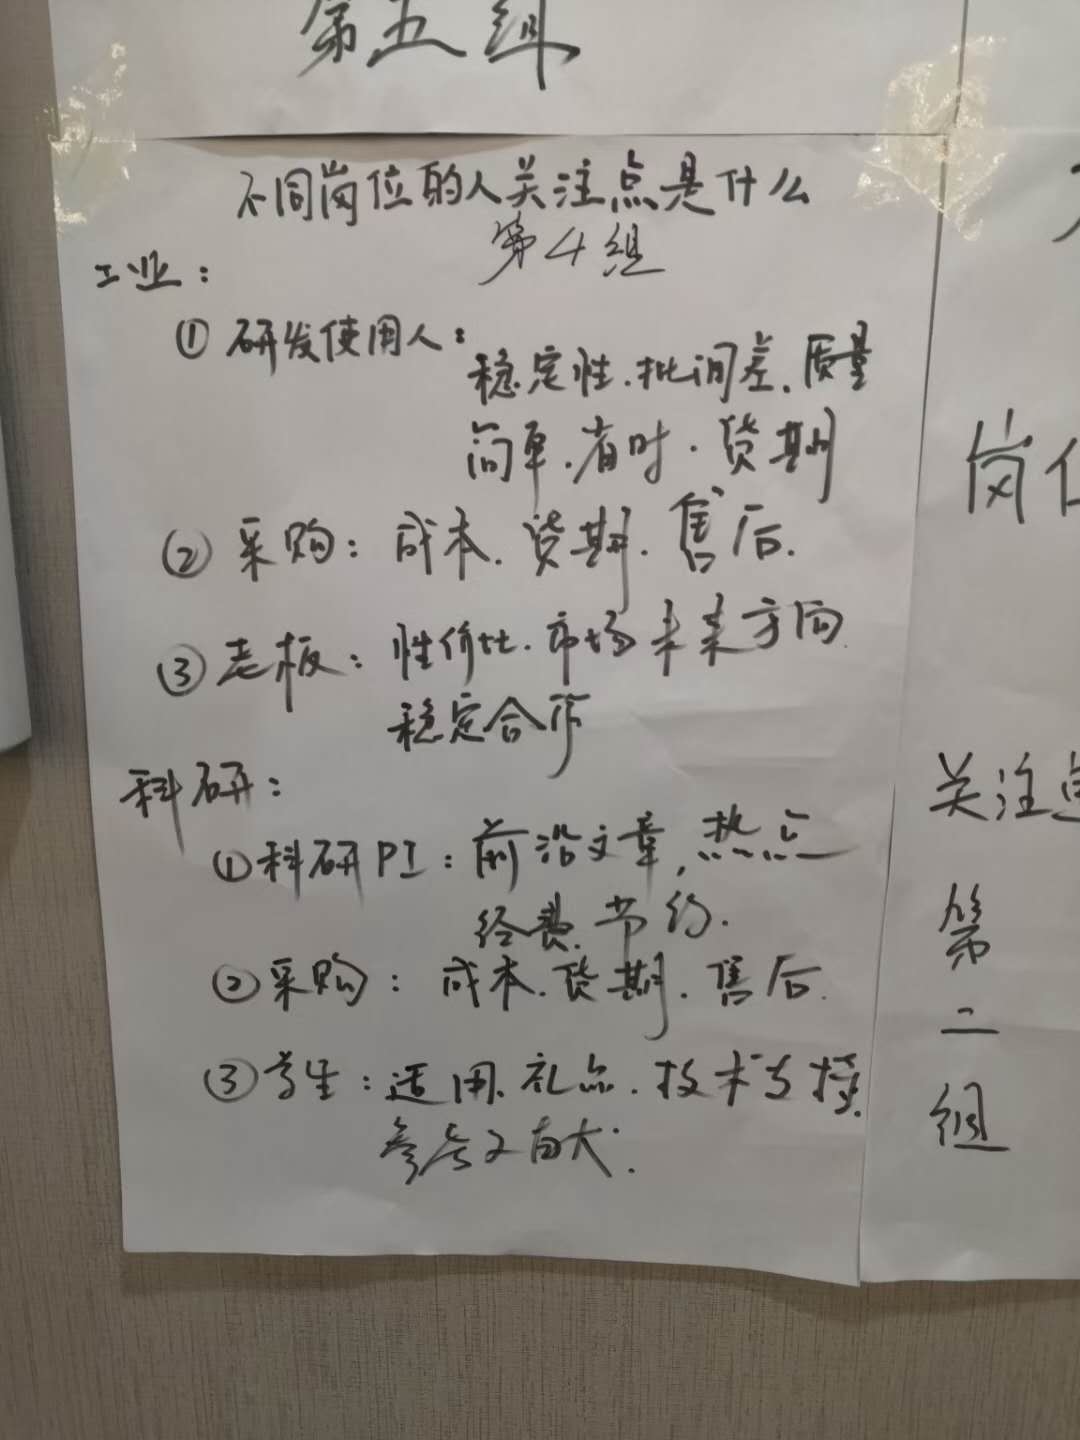 第五组
不同岗位的人关注点是什么
第4组
工业：
① 研发使用人：
稳定性.批间差.质量
简单.省时.货期
② 采购：成本.货期.售后.
③ 老板：性价比.市场未来方向.
稳定合作
科研：
①科研PI：前沿文章,热点
经费.节约.
②采购：成本.货期.售后.
③学生：适用.礼品.技术支持.
参考文献
岗位
关注点
第
二
组